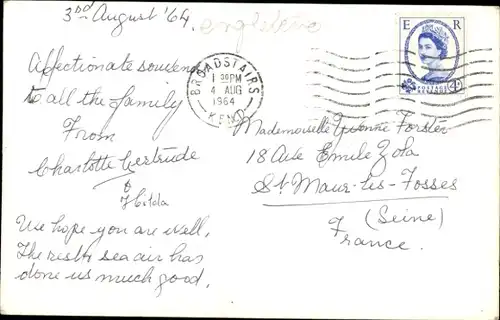 3rd August '64.
angleterre
Affectionate souvenir
to all the family
From
Charlotte Gertrude
& Hilda
We hope you are well.
The rest & sea air has
done us much good.
BROADSTAIRS
1 30PM
4 AUG
1964
KENT
E R
POSTAGE
4D
Mademoiselle Yvonne Forster
18 Ave Emile Zola
St Maur-les-Fosses
(Seine)
France.